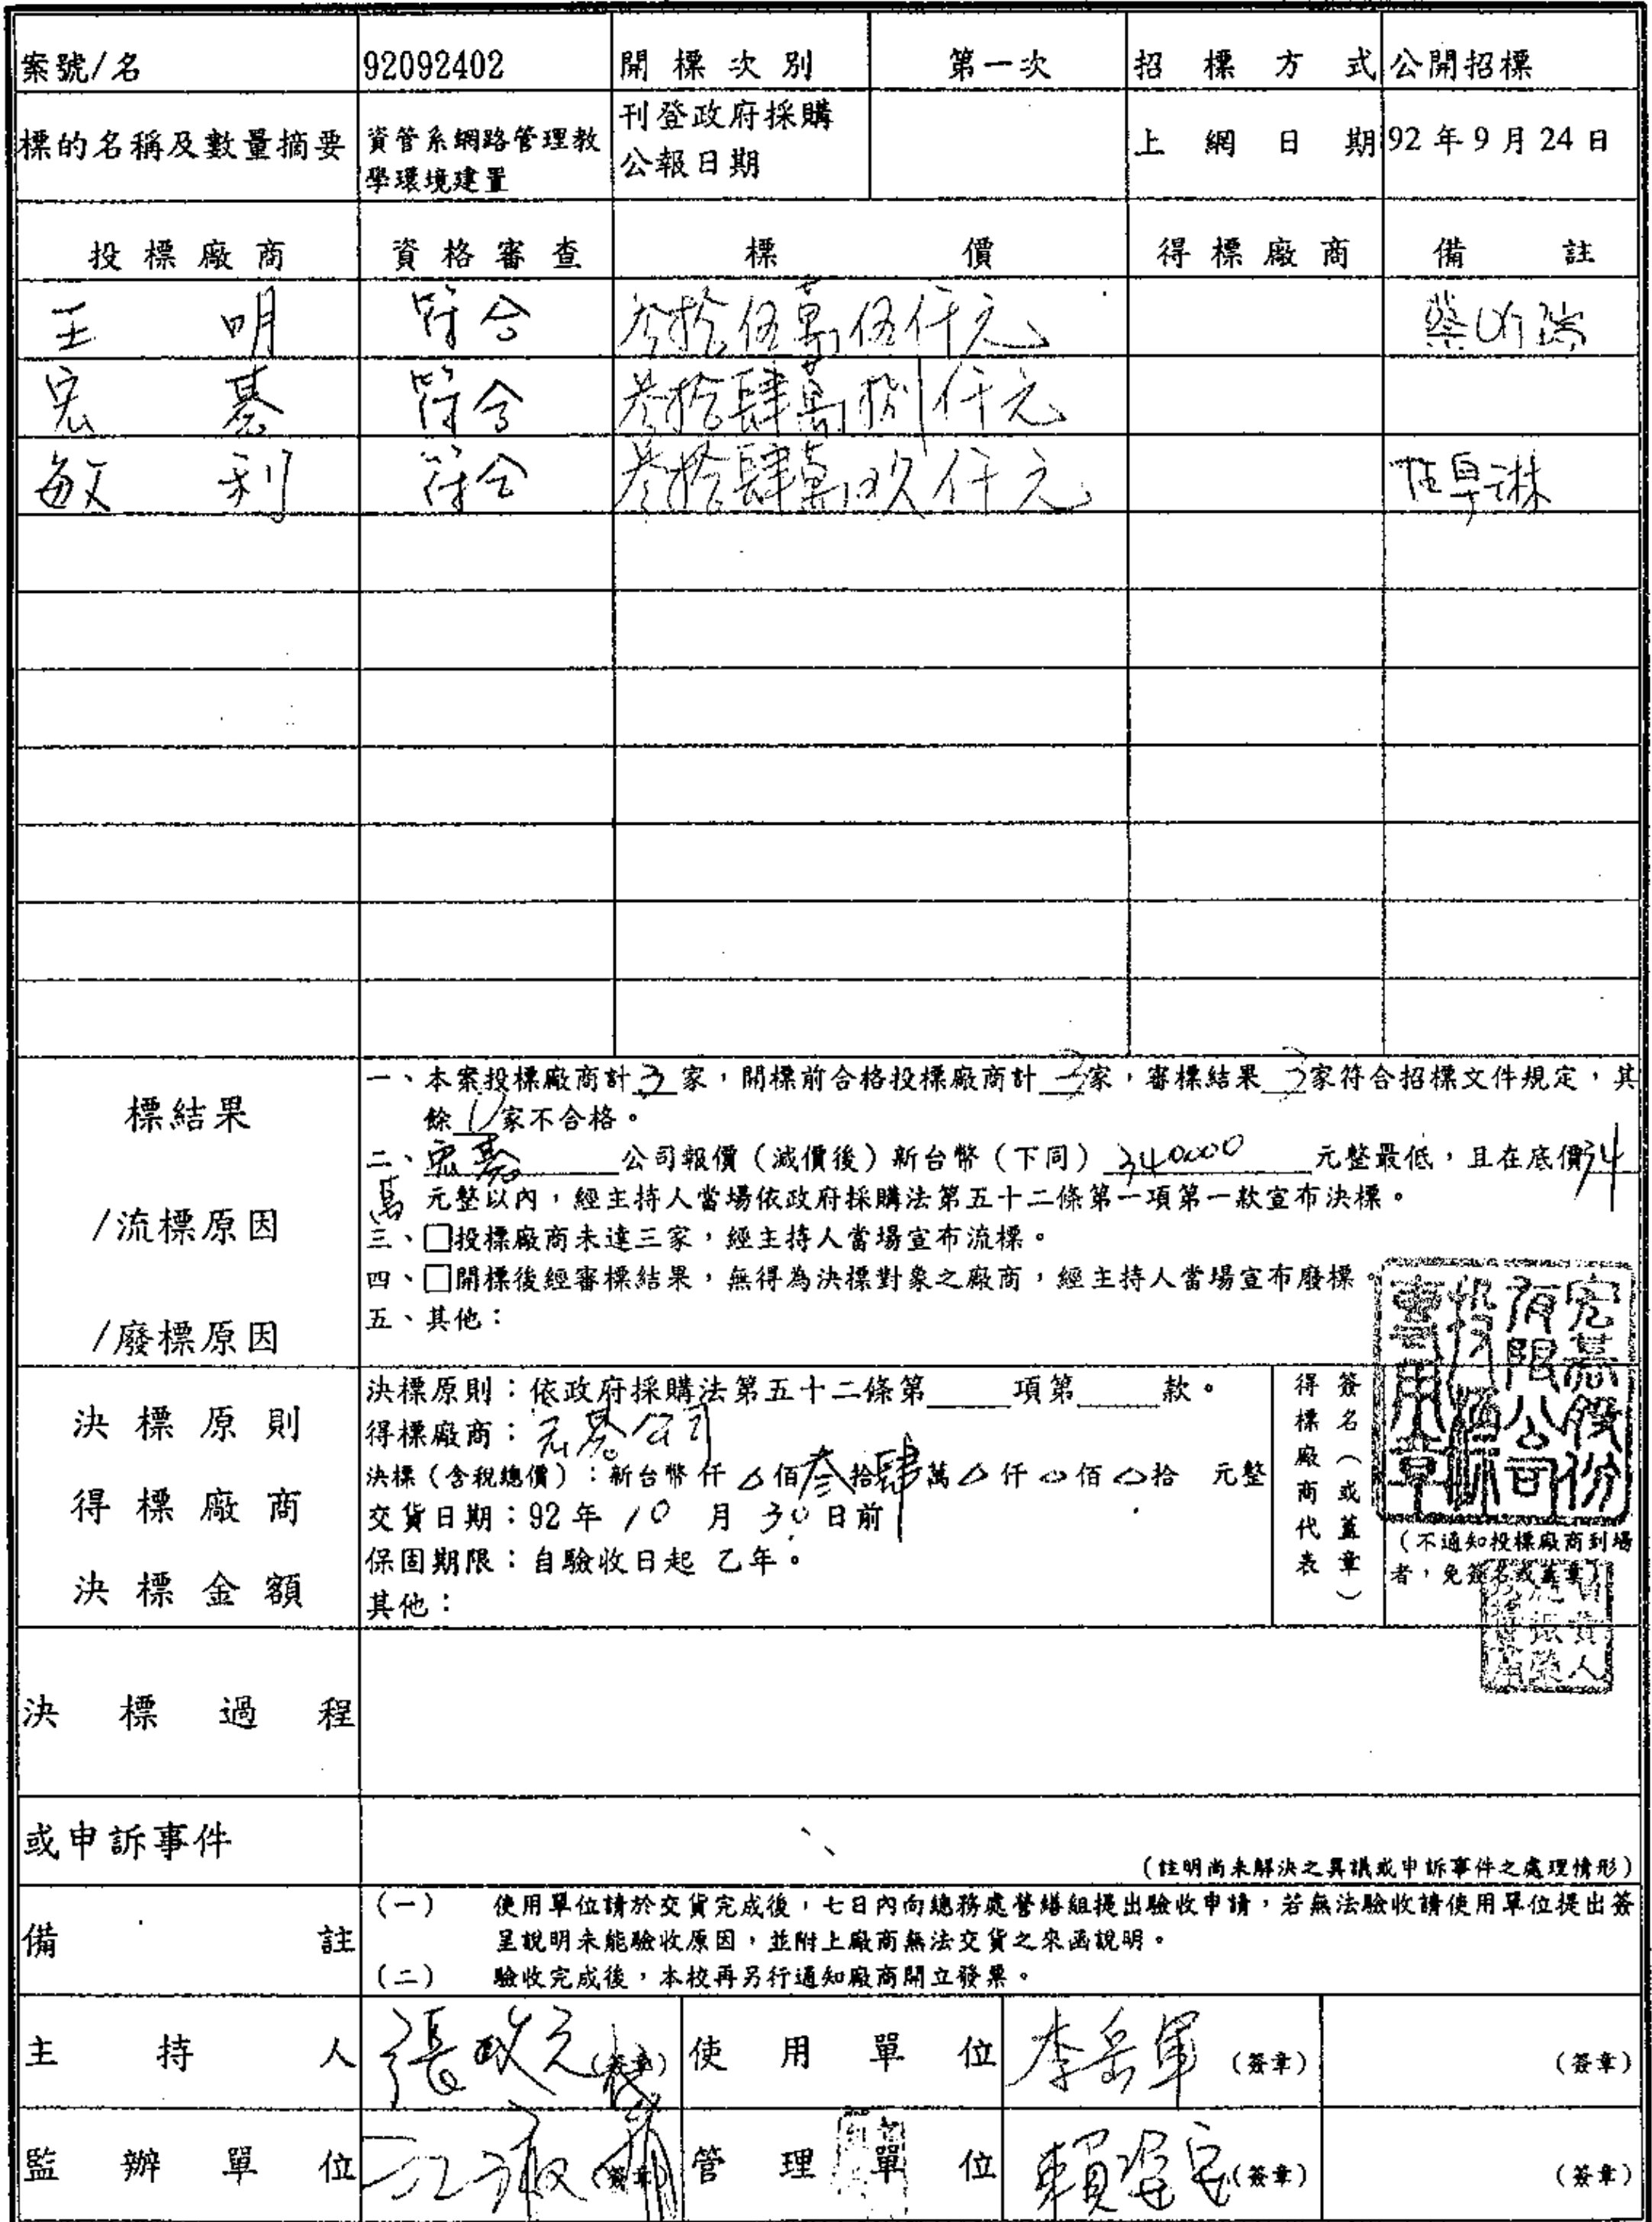 案號/名 92092402 開標次別 第一次 招標方式 公開招標
標的名稱及數量摘要 資管系網路管理教學環境建置 刊登政府採購公報日期 上網日期 92年9月24日
投標廠商 資格審查 標價 得標廠商 備註
王明 符合 叁拾伍萬伍仟元
宏碁 符合 叁拾肆萬捌仟元
敏利 符合 叁拾肆萬玖仟元
標結果
/流標原因
/廢標原因
一、本案投標廠商計3家,開標前合格投標廠商計3家,審標結果3家符合招標文件規定,其
餘0家不合格。
二、宏碁公司報價(減價後)新台幣(下同)340000元整最低,且在底價34
萬元整以內,經主持人當場依政府採購法第五十二條第一項第一款宣布決標。
三、□投標廠商未達三家,經主持人當場宣布流標。
四、□開標後經審標結果,無得為決標對象之廠商,經主持人當場宣布廢標。
五、其他:
決標原則
得標廠商
決標金額
決標原則:依政府採購法第五十二條第 項第 款。
得標廠商:宏碁公司
決標(含稅總價):新台幣 仟 佰叁拾肆萬 仟 佰 拾 元整
交貨日期:92年10月30日前
保固期限:自驗收日起 乙年。
其他:
得標廠商代表
簽名(或蓋章)
宏碁股份
有限公司
投標
專用章
(不通知投標廠商到場
者,免簽名或蓋章)
決標過程
或申訴事件
(註明尚未解決之異議或申訴事件之處理情形)
備註
(一) 使用單位請於交貨完成後,七日內向總務處營繕組提出驗收申請,若無法驗收請使用單位提出簽
呈說明未能驗收原因,並附上廠商無法交貨之來函說明。
(二) 驗收完成後,本校再另行通知廠商開立發票。
主持人 張政元 (簽章) 使用單位 李岳軍 (簽章) (簽章)
監辦單位 (簽章) 管理單位 (簽章) (簽章)